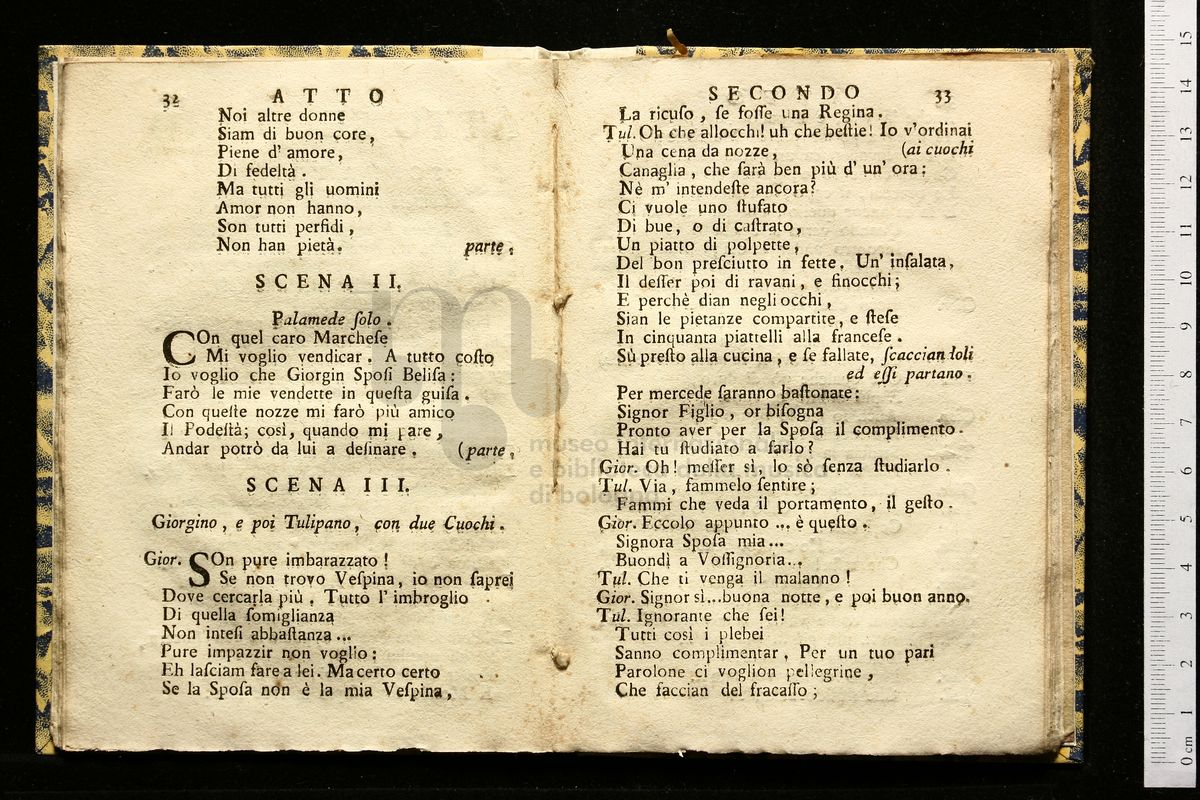 32 ATTO
Noi altre donne
Siam di buon core,
Piene d' amore,
Di fedeltà.
Ma tutti gli uomini
Amor non hanno,
Son tutti perfidi,
Non han pietà. parte.
SCENA II.
Palamede ſolo.
COn quel caro Marcheſe
Mi voglio vendicar. A tutto coſto
Io voglio che Giorgin Spoſi Beliſa:
Farò le mie vendette in queſta guiſa.
Con queſte nozze mi farò più amico
Il Podeſtà; così, quando mi pare,
Andar potrò da lui a deſinare. (parte.
SCENA III.
Giorgino, e poi Tulipano, con due Cuochi.
Gior. SOn pure imbarazzato!
Se non trovo Veſpina, io non ſaprei
Dove cercarla più. Tutto l' imbroglio
Di quella ſomiglianza
Non inteſi abbaſtanza...
Pure impazzir non voglio:
Eh laſciam fare a lei. Ma certo certo
Se la Spoſa non è la mia Veſpina,
SECONDO 33
La ricuſo, ſe foſſe una Regina.
Tul. Oh che allocchi! uh che beſtie! Io v'ordinai
Una cena da nozze, (ai cuochi
Canaglia, che ſarà ben più d' un' ora:
Nè m' intendeſte ancora?
Ci vuole uno ſtufato
Di bue, o di caſtrato,
Un piatto di polpette,
Del bon preſciutto in fette. Un' inſalata,
Il deſſer poi di ravani, e finocchi;
E perchè dian negli occhi,
Sian le pietanze compartite, e ſteſe
In cinquanta piattelli alla franceſe.
Sù preſto alla cucina, e ſe fallate, ſcaccian ſoli
ed eſſi partano.
Per mercede ſaranno baſtonate:
Signor Figlio, or biſogna
Pronto aver per la Spoſa il complimento.
Hai tu ſtudiato a farlo?
Gior. Oh! meſſer sì, lo sò ſenza ſtudiarlo.
Tul. Via, fammelo ſentire;
Fammi che veda il portamento, il geſto.
Gior. Eccolo appunto... è queſto.
Signora Spoſa mia...
Buondì a Voſſignoria...
Tul. Che ti venga il malanno!
Gior. Signor sì...buona notte, e poi buon anno.
Tul. Ignorante che ſei!
Tutti così i plebei
Sanno complimentar. Per un tuo pari
Parolone ci voglion pellegrine,
Che faccian del fracaſſo;